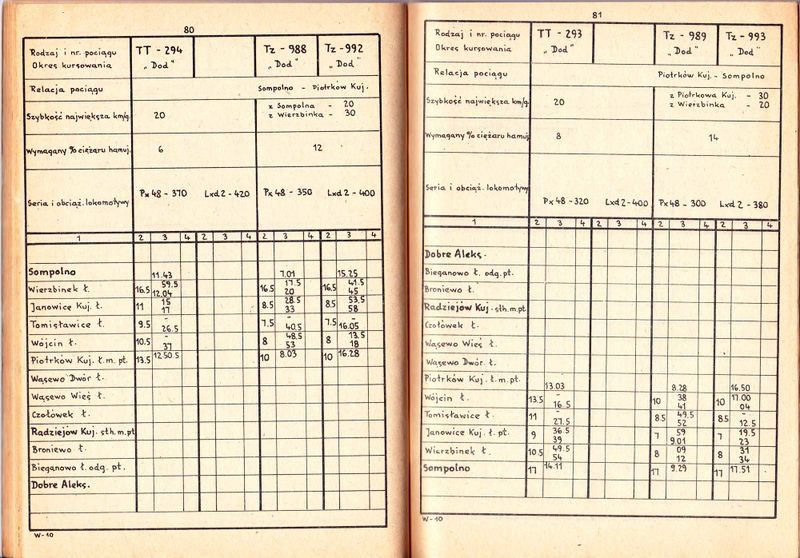 80
Rodzaj i nr. pociągu TT - 294 Tz - 988 Tz - 992
Okres kursowania „Dod" „Dod" „Dod"
Relacja pociągu Sompolno - Piotrków Kuj.
Szybkość największa km/g. 20 z Sompolna - 20
z Wierzbinka - 30
Wymagany % ciężaru hamuj. 6 12
Seria i obciąż. lokomotywy Px48-370 Lxd2-420 Px48-350 Lxd2-400
1 2 3 4 2 3 4 2 3 4 2 3 4
Sompolno 11.43 7.01 15.25
Wierzbinek ł. 16.5 59.5 16.5 17.5 16.5 41.5
12.04 20 45
Janowice Kuj. ł. 11 15 8.5 28.5 8.5 53.5
17 33 58
Tomisławice ł. 9.5 - 7.5 - 7.5 -
26.5 40.5 16.05
Wójcin ł. 10.5 - 8 48.5 8 13.5
37 53 18
Piotrków Kuj. ł.m.pt. 13.5 12 50.5 10 8.03 10 16.28
Wąsewo Dwór ł.
Wąsewo Wieś ł.
Czołówek ł.
Radziejów Kuj. sth.m.pt
Broniewo ł.
Bieganowo ł. odg. pt.
Dobre Aleks.
W-10
81
Rodzaj i nr. pociągu TT - 293 Tz - 989 Tz - 993
Okres kursowania „Dod" „Dod" „Dod"
Relacja pociągu Piotrków Kuj. - Sompolno
Szybkość największa km/g. 20 z Piotrkowa Kuj. - 30
z Wierzbinka - 20
Wymagany % ciężaru hamuj. 8 14
Seria i obciąż. lokomotywy Px48-320 Lxd2-400 Px48-300 Lxd2-380
1 2 3 4 2 3 4 2 3 4 2 3 4
Dobre Aleks.
Bieganowo ł. odg. pt.
Broniewo ł.
Radziejów Kuj. sth.m.pt
Czołówek ł.
Wąsewo Wieś ł.
Wąsewo Dwór. ł.
Piotrków Kuj. ł.m.pt 13.03 8.28 16.50
Wójcin ł. 13.5 - 10 38 10 17.00
16.5 41 04
Tomisławice ł. 11 - 8.5 49.5 8.5 -
27.5 52 12.5
Janowice Kuj. ł. pt. 9 36.5 7 59 7 19.5
39 9.01 23
Wierzbinek ł. 10.5 49.5 8 09 8 31
54 12 34
Sompolno 17 14.11 17 9.29 17 17.51
W-10